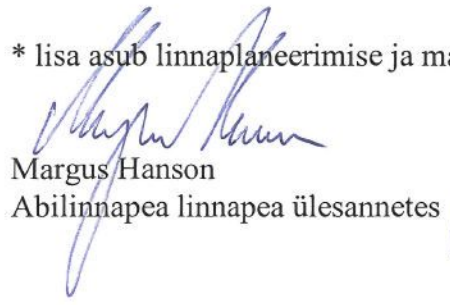 * lisa asub linnaplaneerimise ja ma
Margus Hanson
Abilinnapea linnapea ülesannetes